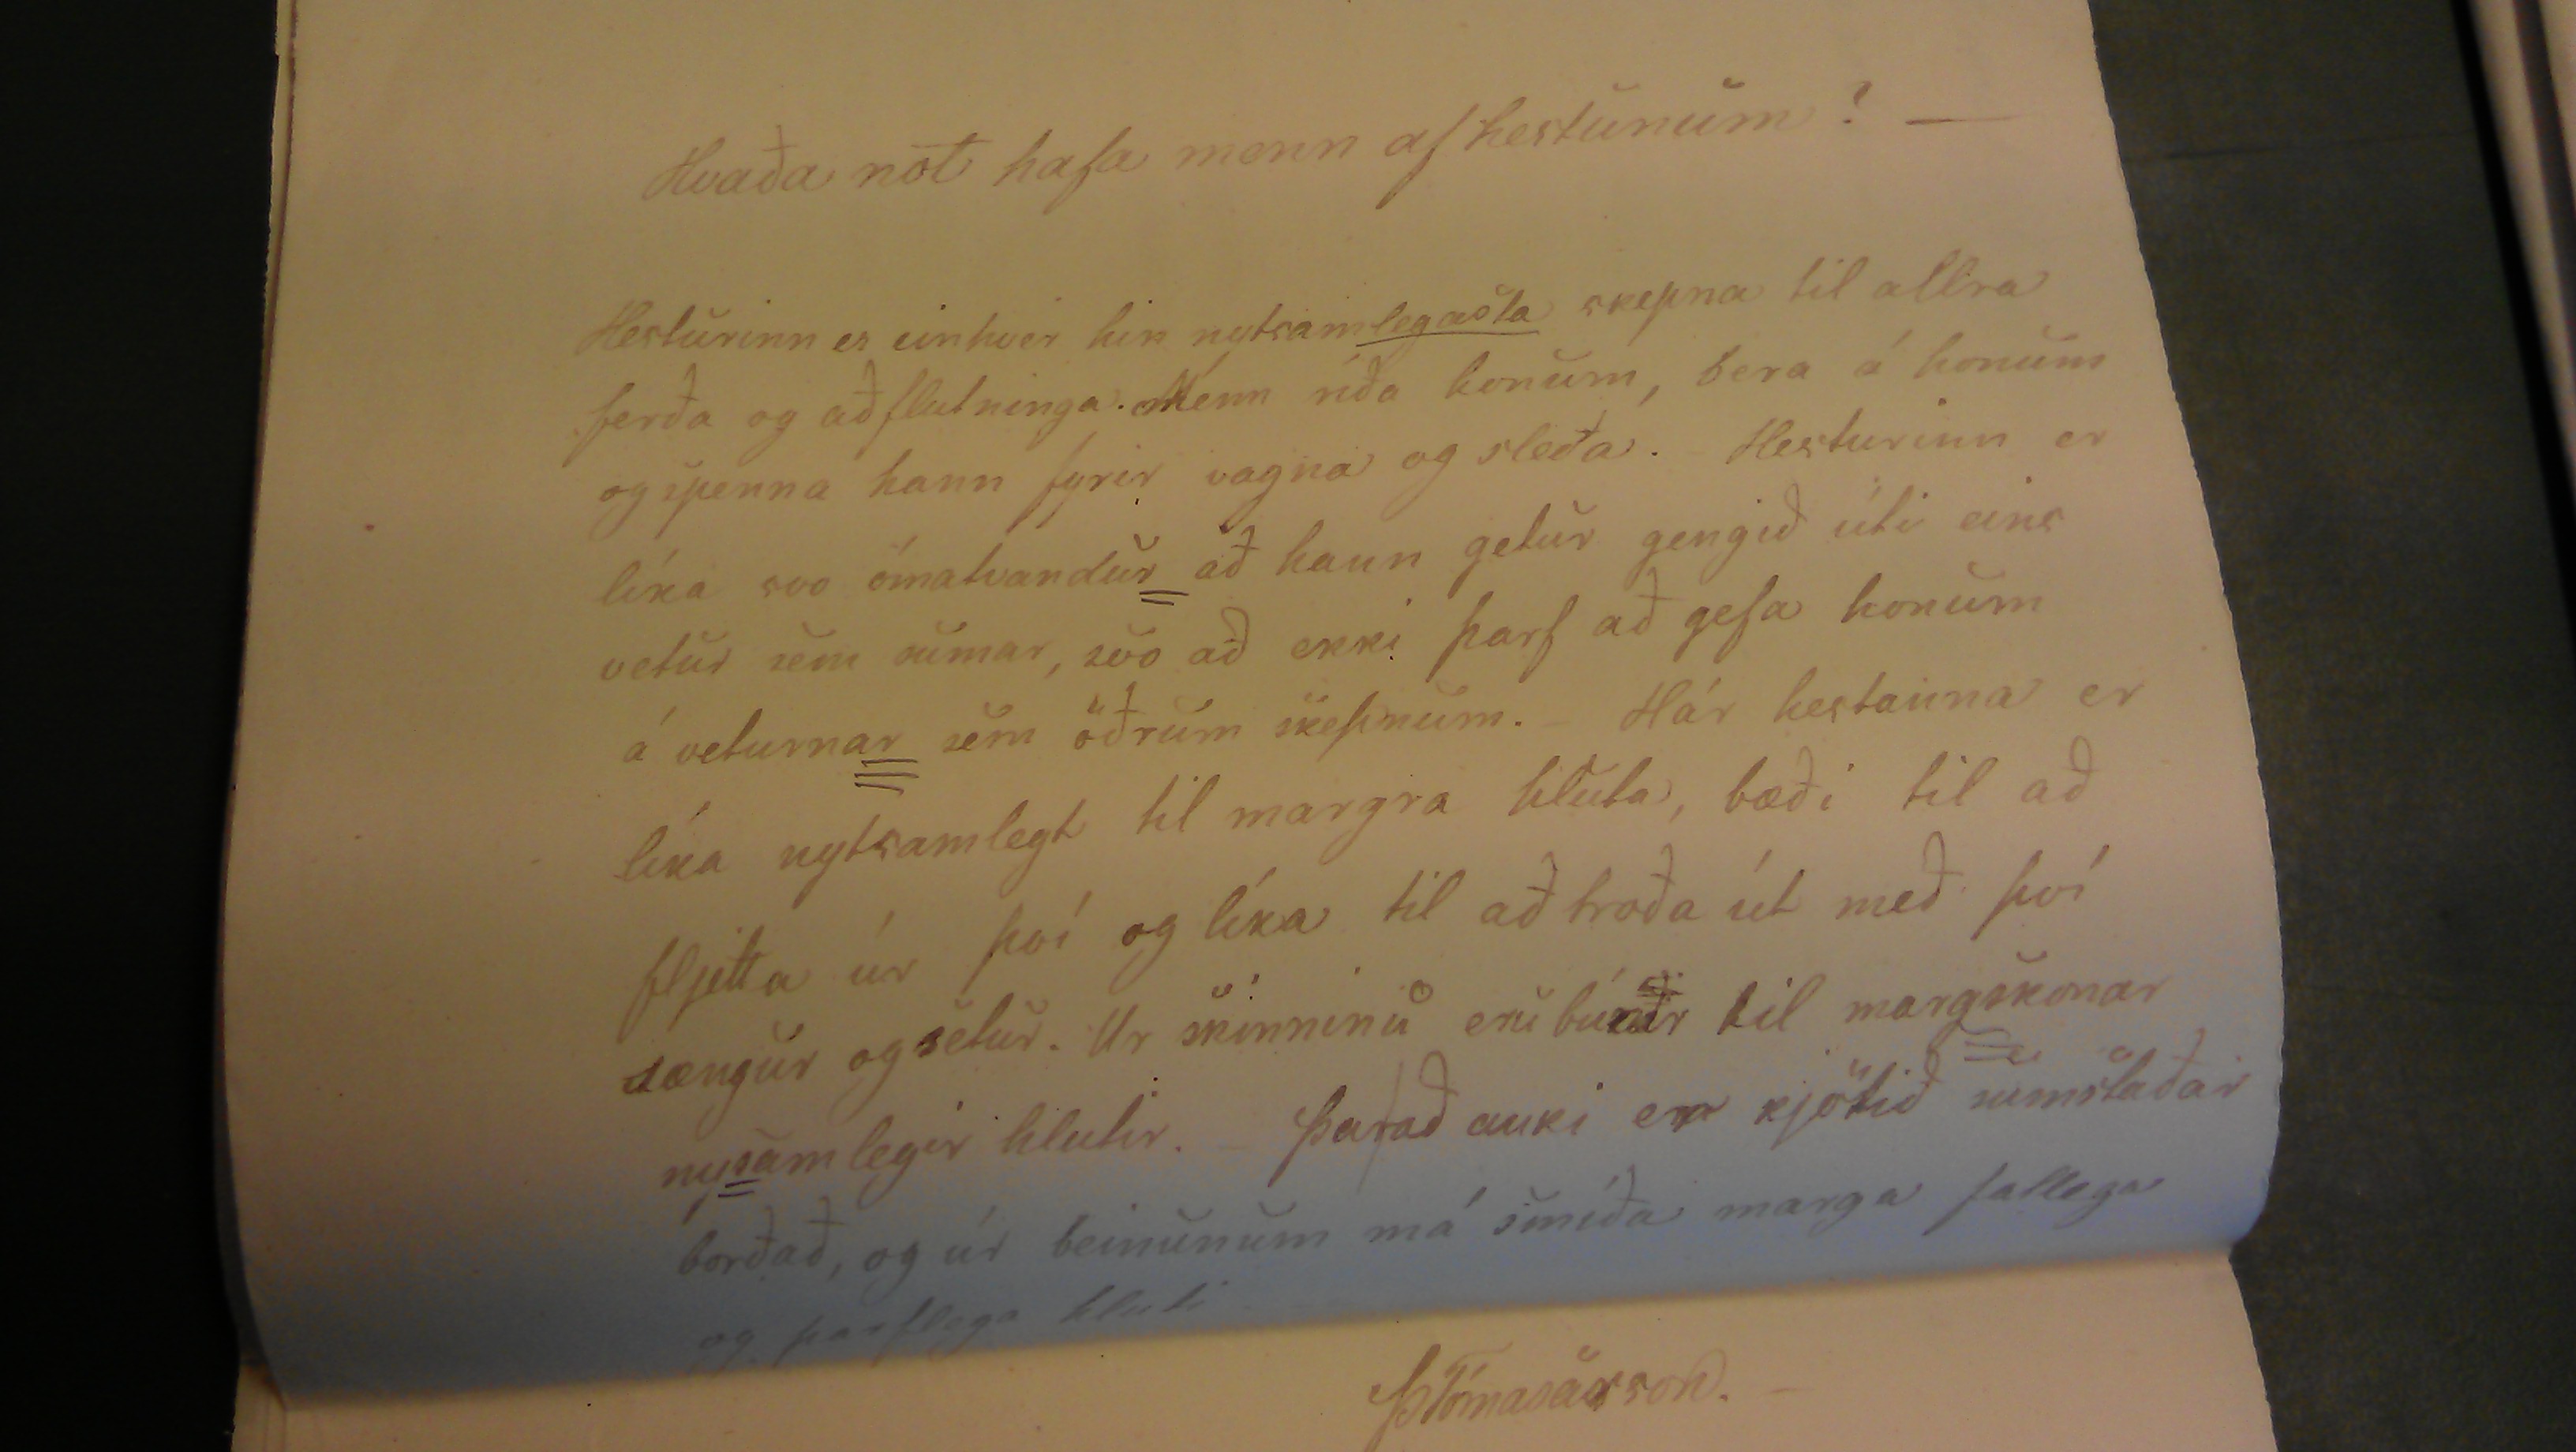 Hvaða not hafa menn af hestunum? —
Hesturinn er einhver hin nytsamlegasta skepna til allra
ferða og aðflutninga. Menn ríða honum, bera á honum
og spenna hann fyrir vagna og sleða. Hesturinn er
líka svo ómatvandur að hann getur gengið úti eins
vetur sem sumar, svo að ekki þarf að gefa honum
á veturnar sem öðrum skepnum. – Hár hestanna er
líka nytsamlegt til margra hluta, bæði til að
fljetta úr því og líka til að troða út með því
sængur og setur. Ur skinninu eru búnir til margskonar
nysamlegir hlutir. – Þarað auki er kjötið sumstaðar
borðað, og úr beinunum má smíða marga fallega
og þarflega hluti
ÞTómasarson. –